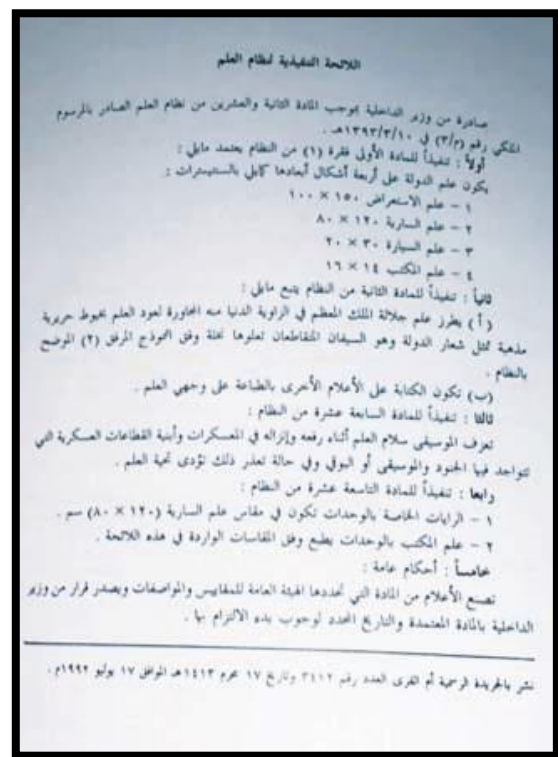 اللائحة التنفيذية لنظام العلم
صادرة من وزير الداخلية بموجب المادة الثانية والعشرين من نظام العلم الصادر بالمرسوم
الملكي رقم (م/٣) في ١٣٩٣/٣/١٠هـ .
أولاً : تنفيذاً للمادة الأولى فقرة (١) من النظام يعتمد مايلي :
يكون علم الدولة على أربعة أشكال أبعادها كمايلي بالسنتيمترات :
١ – علم الاستعراض ١٥٠ × ١٠٠
٢ – علم السارية ١٢٠ × ٨٠
٣ – علم السيارة ٣٠ × ٢٠
٤ – علم المكتب ١٤ × ١٦
ثانياً : تنفيذاً للمادة الثانية من النظام يتبع مايلي :
( أ ) يطرز علم جلالة الملك المعظم في الزاوية الدنيا منه المجاورة لعود العلم بخيوط حريرية
مذهبة تمثل شعار الدولة وهو السيفان المتقاطعان تعلوها نخلة وفق النموذج المرفق (٢) الموضح
بالنظام .
(ب) تكون الكتابة على الأعلام الأخرى بالطباعة على وجهي العلم .
ثالثا : تنفيذاً للمادة السابعة عشرة من النظام :
تعزف الموسيقى سلام العلم أثناء رفعه وإنزاله في المعسكرات وأبنية القطاعات العسكرية التي
تتواجد فيها الجنود والموسيقى أو البوق وفي حالة تعذر ذلك تؤدى تحية العلم .
رابعا : تنفيذاً للمادة التاسعة عشرة من النظام :
١ – الرايات الخاصة بالوحدات تكون في مقاس علم السارية (١٢٠ × ٨٠) سم .
٢ – علم المكتب بالوحدات يطبع وفق المقاسات الواردة في هذه اللائحة .
خامساً : أحكام عامة :
تصنع الأعلام من المادة التي تحددها الهيئة العامة للمقاييس والمواصفات ويصدر قرار من وزير
الداخلية بالمادة المعتمدة والتاريخ المحدد لوجوب بدء الالتزام بها .
نشر بالجريدة الرسمية أم القرى العدد رقم ٣٤١٢ وتاريخ ١٧ محرم ١٤١٣هـ الموافق ١٧ يوليو ١٩٩٢م .